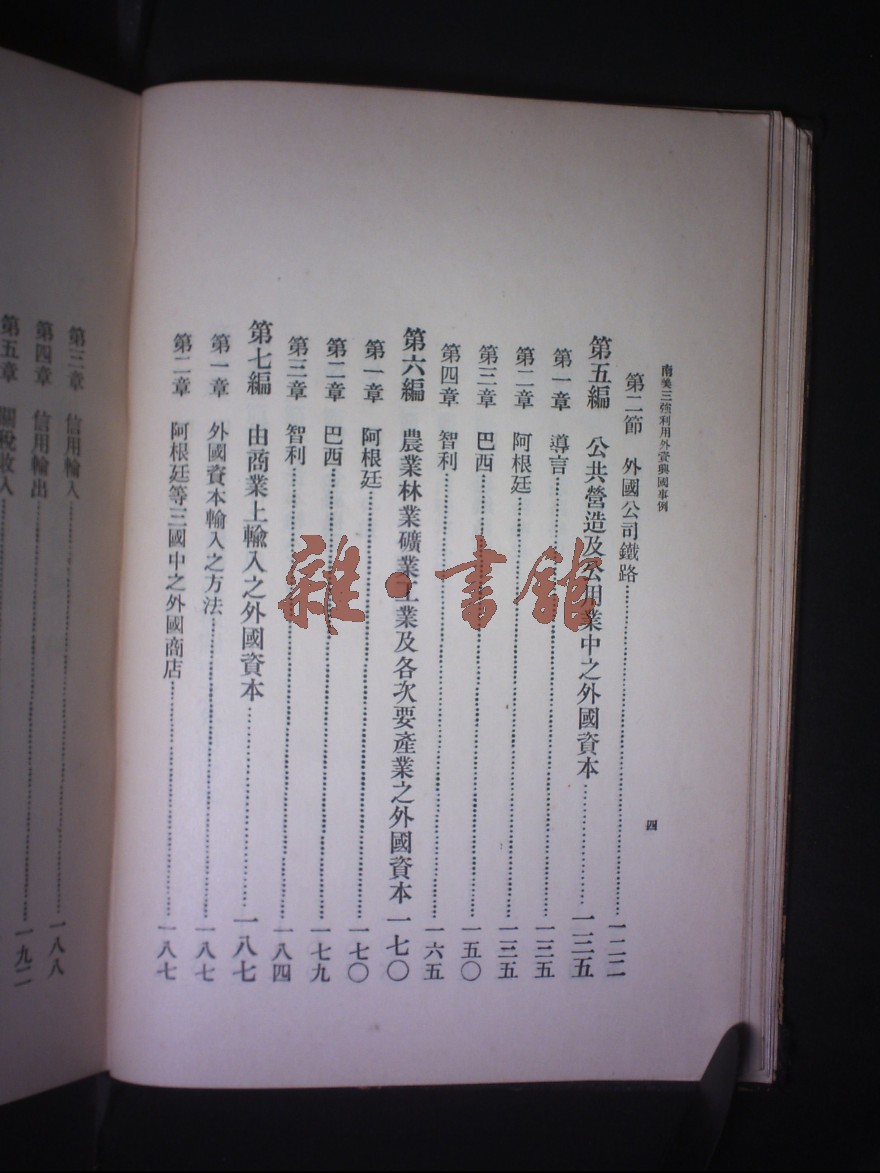 南美三強利用外資興國事例
四
第二節 外國公司鐵路……一二二
第五編 公共營造及公用業中之外國資本……一三五
第一章 導言……一三五
第二章 阿根廷……一三五
第三章 巴西……一五〇
第四章 智利……一六五
第六編 農業林業礦業工業及各次要產業之外國資本一七〇
第一章 阿根廷……一七〇
第二章 巴西……一七九
第三章 智利……一八四
第七編 由商業上輸入之外國資本……一八七
第一章 外國資本輸入之方法……一八七
第二章 阿根廷等三國中之外國商店……一八七
第三章 信用輸入……一八八
第四章 信用輸出……一九二
第五章 關稅收入
雜·書館